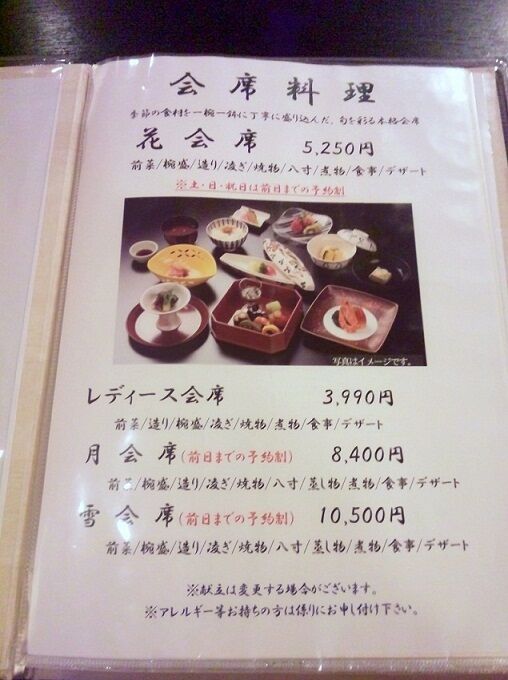 会席料理
季節の食材を一椀一鉢に丁寧に盛り込んだ、旬を彩る本格会席
花会席 5,250円
前菜/椀盛/造り/凌ぎ/焼物/八寸/煮物/食事/デザート
※土・日・祝日は前日までの予約制
写真はイメージです。
レディース会席 3,990円
前菜/造り/椀盛/凌ぎ/焼物/煮物/食事/デザート
月会席(前日までの予約制) 8,400円
前菜/椀盛/造り/凌ぎ/焼物/八寸/蒸し物/煮物/食事/デザート
雪会席(前日までの予約制) 10,500円
前菜/椀盛/造り/凌ぎ/焼物/八寸/蒸し物/煮物/食事/デザート
※献立は変更する場合がございます。
※アレルギー等お持ちの方は係りにお申し付け下さい。